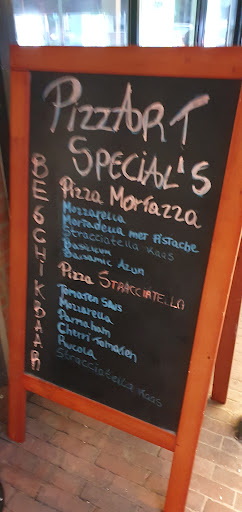 PizzART
SPECIAL'S
BESCHIKBAAR
Pizza Mortazza
Mozzarella
Mortadella met Pistache
Stracciatella kaas
Basilicum
Balsamic Azun
Pizza STRACCIATELLA
Tomaten Saus
Mozzarella
Parmaham
Cherri Tomaten
Rucola
Stracciatella kaas